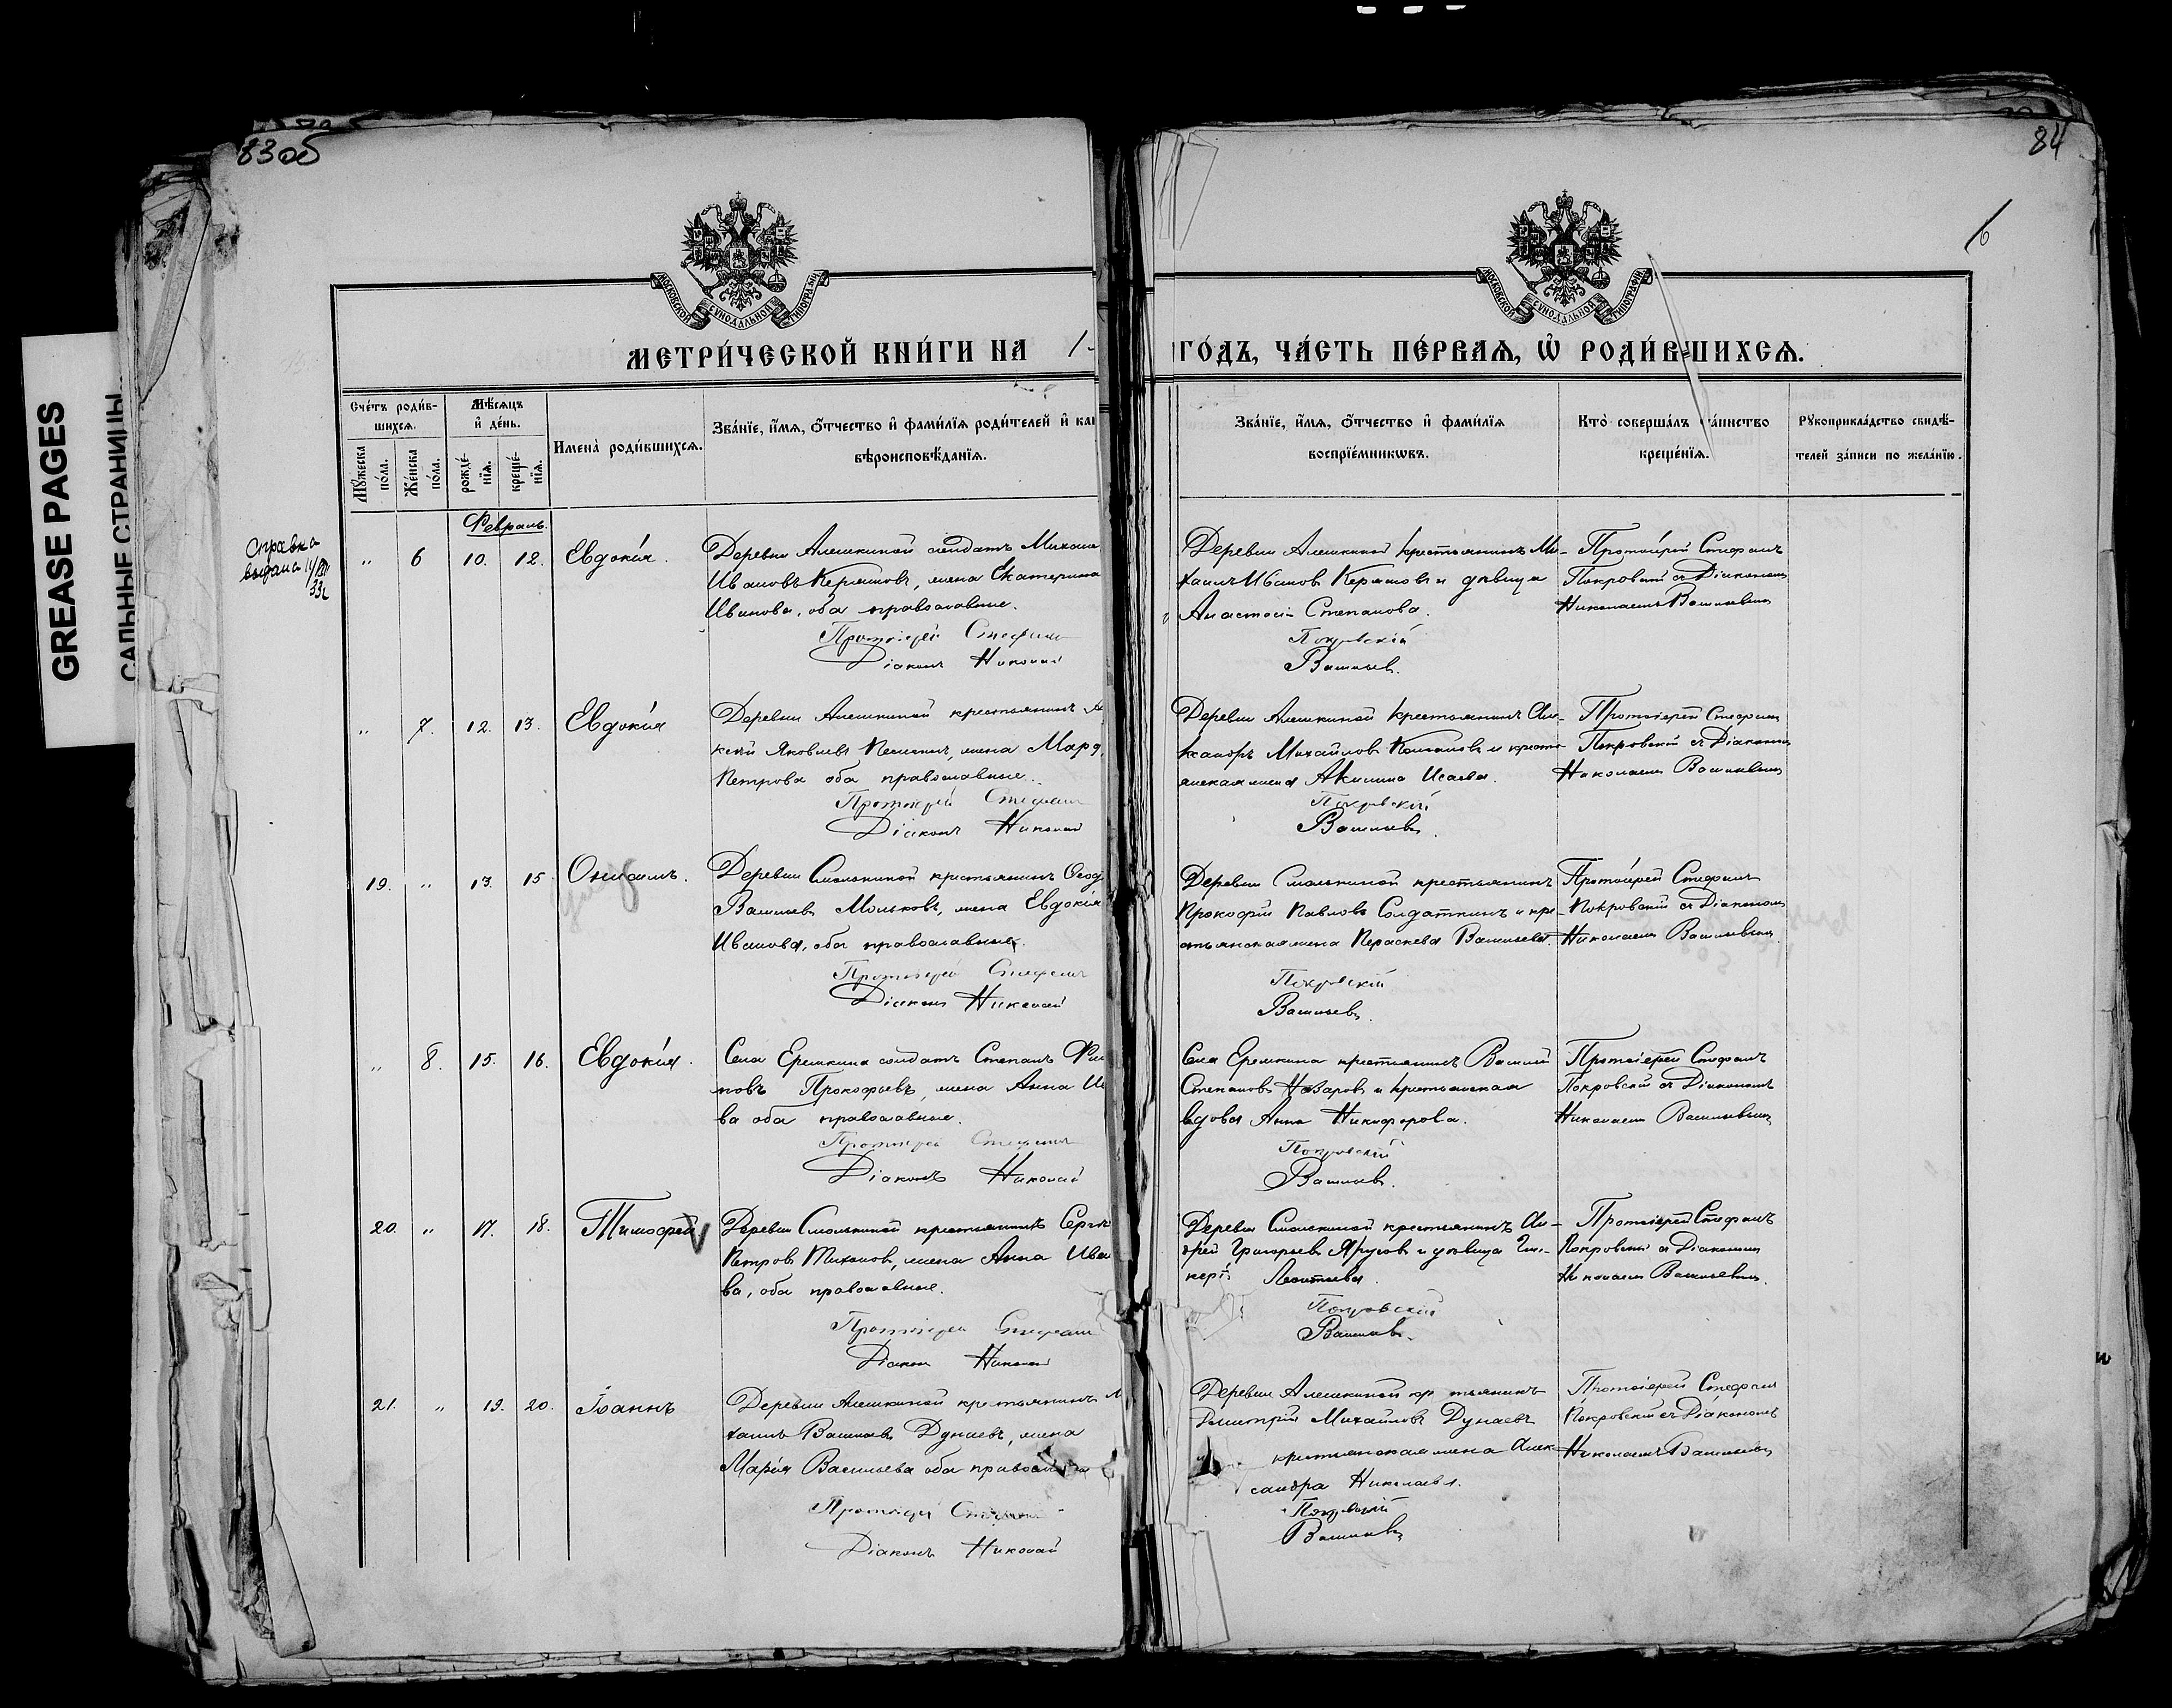 83об
84
6
GREASE PAGES
САЛЬНЫЕ СТРАНИЦЫ
МОСКОВСКОЙ СУНОДАЛЬНОЙ ТИПОГРАФИИ
МОСКОВСКОЙ СУНОДАЛЬНОЙ ТИПОГРАФИИ
МЕТРИ́ЧЕСКОЙ КНИ́ГИ НА 1
ГО́ДЪ, ЧА́СТЬ ПЕ́РВАѦ, Ѽ РОДИ́ВШИХСѦ.
Сче́тъ роди́в-
шихсѧ.
Мꙋ́жеска по́ла.
Же́нска по́ла.
Мѣ́сѧцъ
и҆ де́нь.
рожде́-
нїѧ.
креще́-
нїѧ.
И҆мена̀ роди́вшихсѧ.
Зва́нїе, и҆́мѧ, ѻ҆́тчество и҆ фами́лїѧ роди́телей и҆ ка
вѣроисповѣ́данїѧ.
Зва́нїе, и҆́мѧ, ѻ҆́тчество и҆ фами́лїѧ
воспрїе́мникѡвъ.
Кто̀ соверша́лъ та́инство
креще́нїѧ.
Рꙋкоприкла́дство свидѣ́-
телей за́писи по жела́нїю.
Февраль.
Справка
выдана
33г
„ 6 10. 12. Евдокія.
Деревни Алешкиной солдатъ Михаил
Ивановъ Кермановъ, жена Екатерина
Иванова, оба православные.
Протоіерей Стефанъ
Діаконъ Николай
Деревни Алешкиной крестьянинъ Ми-
хаилъ Ивановъ и дѣвица
Анастасія Степанова.
Покровскій
Васильевъ.
Протоіерей Стефанъ
Покровскій съ Діакономъ
Николаемъ Васильевымъ
„ 7. 12. 13. Евдокія
Деревни Алешкиной крестьянинъ Але
ксѣй Яковлевъ жена Марѳ
Петрова оба православные.
Протоіерей Стефанъ
Діаконъ Николай
Деревни Алешкиной крестьянинъ Але-
ксандръ Михайловъ и кресть-
янская жена Акилина Исаева.
Покровскій
Васильевъ.
Протоіерей Стефанъ
Покровскій съ Діакономъ
Николаемъ Васильевымъ
19. „ 13. 15. Онисимъ.
Деревни Смолькиной крестьянинъ Ѳеод
Васильевъ Мольковъ, жена Евдокія
Иванова, оба православные.
Протоіерей Стефанъ
Діаконъ Николай
Деревни Смолькиной крестьянинъ
Прокофій Павловъ Солдаткинъ и кре-
стьянская жена Параскева Васильева.
Покровскій
Васильевъ.
Протоіерей Стефанъ
Покровскій съ Діакономъ
Николаемъ Васильевымъ.
„ 8. 15. 16. Евдокія.
Села Еремкина солдатъ Степанъ Фили
повъ Прокофьевъ, жена Анна Ив
ва оба православные.
Протоіерей Стефанъ
Діаконъ Николай
Села Еремкина крестьянинъ Василій
Степановъ Назаровъ и крестьянская
вдова Анна Никифорова.
Покровскій
Васильевъ.
Протоіерей Стефанъ
Покровскій съ Діакономъ
Николаемъ Васильевымъ
20. „ 17. 18. Тимофей
Деревни Смолькиной крестьянинъ Серге
Петровъ Тихоновъ, жена Анна Ива
ва, оба православные.
Протоіерей Стефанъ
Діаконъ Николай
Деревни Смолькиной крестьянинъ Ан-
дрей Григорьевъ Яругов и дѣвица Гли-
керія Леонтьева.
Покровскій
Васильевъ.
Протоіерей Стефанъ
Покровскій съ Діакономъ
Николаемъ Васильевымъ.
21. „ 19. 20. Іоаннъ
Деревни Алешкиной крестьянинъ М
хаилъ Васильевъ Дунаевъ, жена
Марія Васильева оба православные
Протоіерей Стефанъ
Діаконъ Николай
Деревни Алешкиной крестьянинъ
Дмитрій Михайловъ Дунаевъ
крестьянская жена Алек-
сандра Николаева.
Покровскій
Васильевъ
Протоіерей Стефанъ
Покровскій съ Діакономъ
Николаемъ Васильевымъ